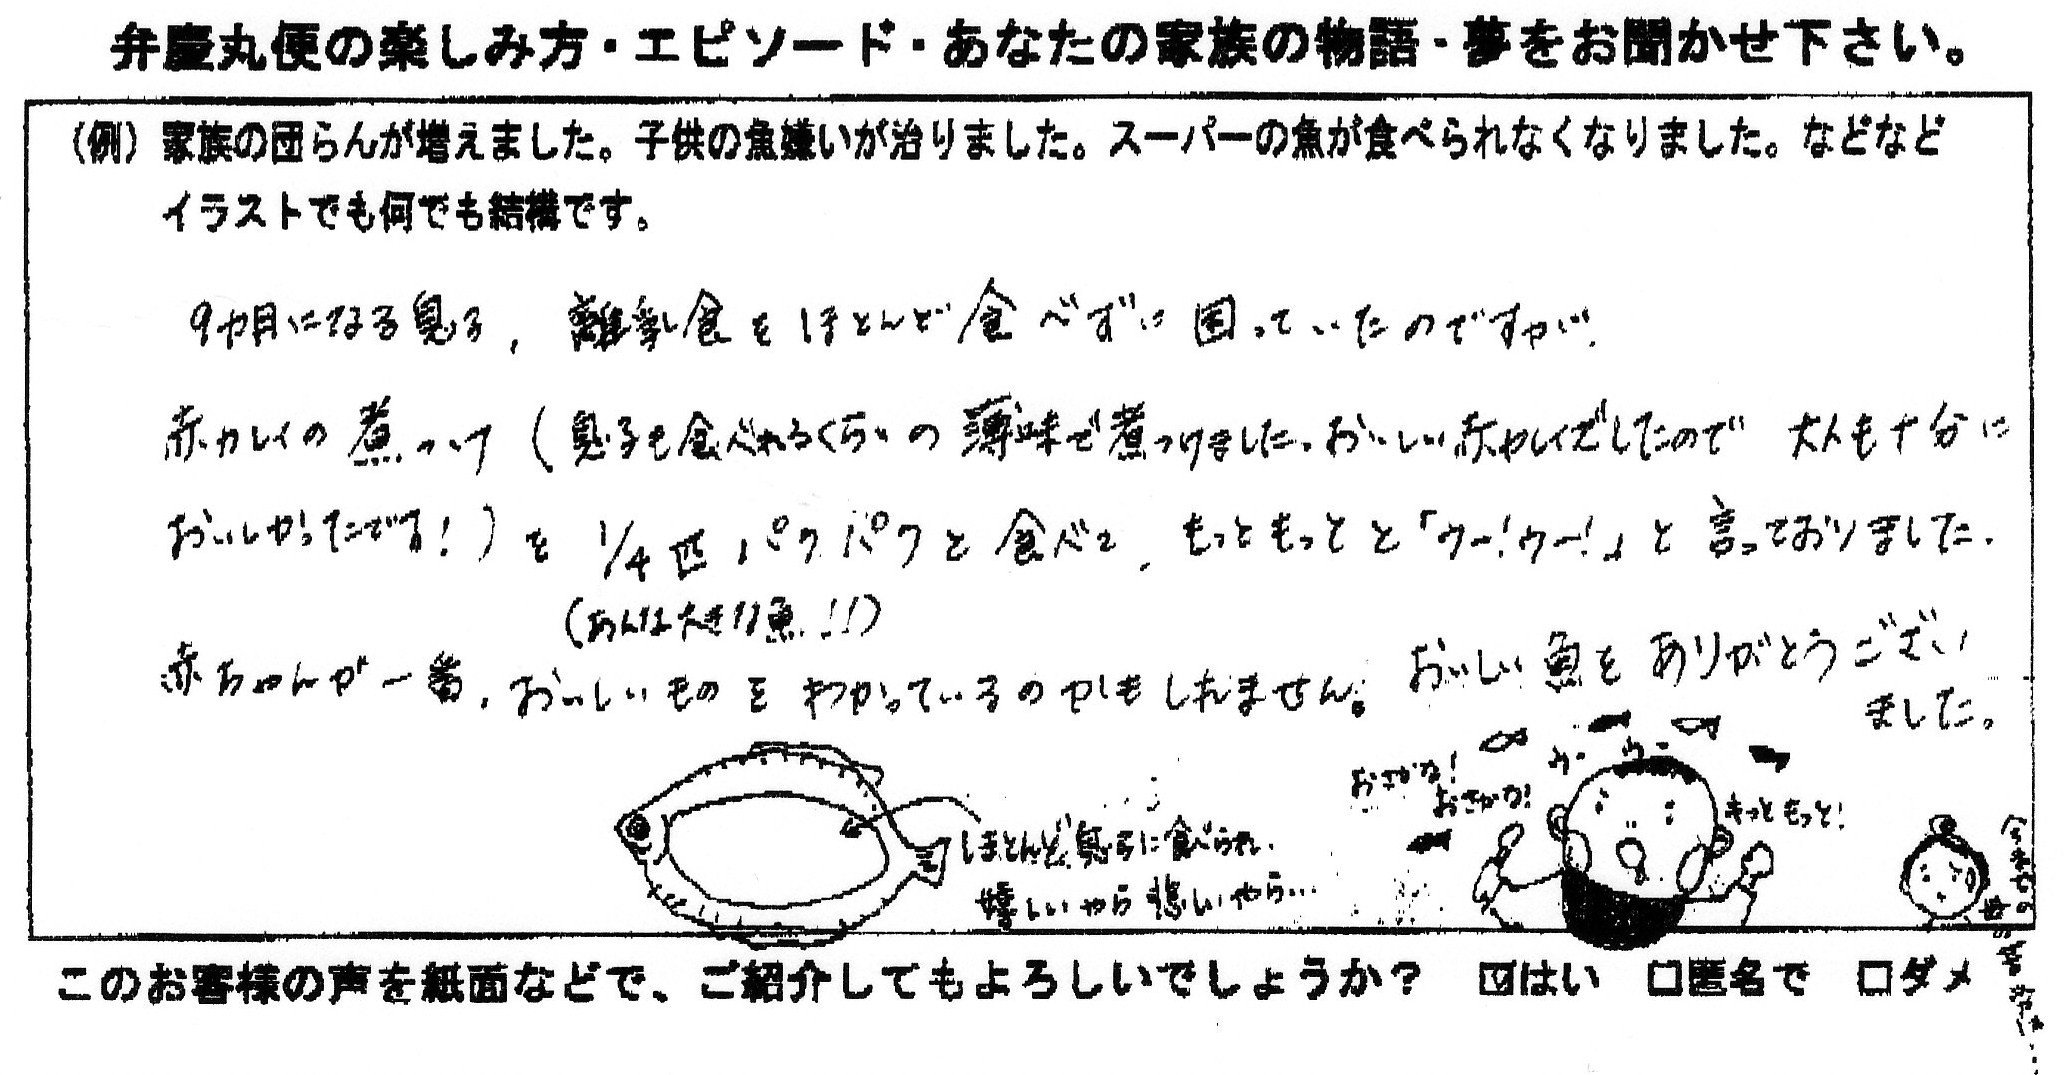 弁慶丸便の楽しみ方・エピソード・あなたの家族の物語・夢をお聞かせ下さい。
（例）家族の団らんが増えました。子供の魚嫌いが治りました。スーパーの魚が食べられなくなりました。などなど
イラストでも何でも結構です。
9ヵ月になる息子、離乳食をほとんど食べずに困っていたのですが、
赤カレイの煮つけ（息子も食べれるくらいの薄味で煮つけました。おいしい赤カレイでしたので 大人も十分に
おいしかったです！）を 1/4匹 パクパクと食べて、もっともっとと「ウー！ウー！」と言っておりました。
（あんな大きな魚!!）
赤ちゃんが一番、おいしいものをわかっているのかもしれません。おいしい魚をありがとうござい
ました。
おさかな！
おさかな！
ウー
ウー
もっともっと！
ほとんど息子に食べられ、
嬉しいやら悲しいやら…
母の
このお客様の声を紙面などで、ご紹介してもよろしいでしょうか？ ☑はい □匿名で □ダメ